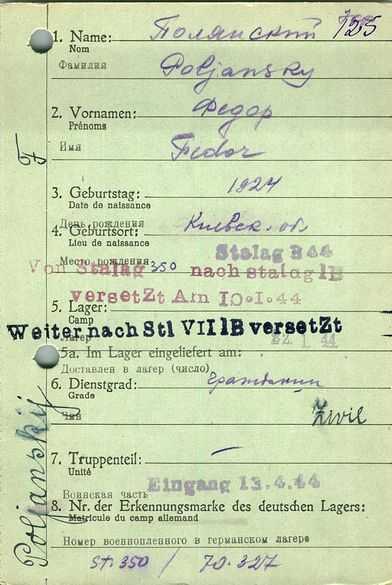 125
1. Name: Полянский
Nom
Фамилия Poljansky
2. Vornamen: Федор
Prénoms
Имя Fedor
F
3. Geburtstag: 1924
Date de naissance
День рождения
4. Geburtsort: Киевск. об.
Lieu de naissance
Место рождения
Stalag 344
Von Stalag 350 nach stalag IB
versetzt Am 10.1.44
5. Lager:
Camp
Лагерь
Weiter nach Stl VIIIB versetzt
22.1.44
5a. Im Lager eingeliefert am:
Доставлен в лагер (число)
6. Dienstgrad: гражданин
Grade
Чин
Zivil
7. Truppenteil: –
Unité
Воинская часть
Eingang 13.4.44
8. Nr. der Erkennungsmarke des deutschen Lagers:
Matricule du camp allemand
Номер военнопленного в германском лагере
St. 350 / 70.327
Poljanskij